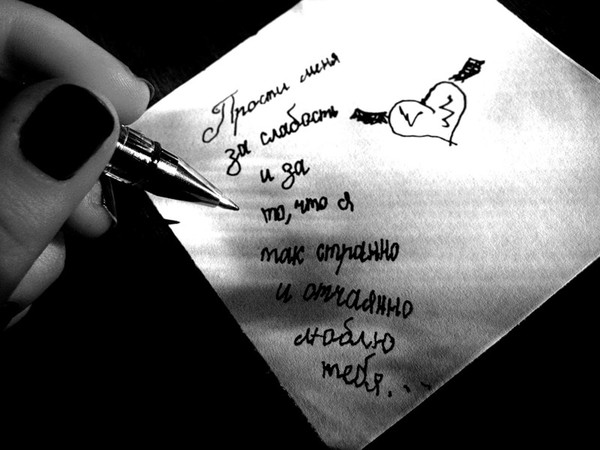 Прости меня
за слабость
и за
то, что я
так странно
и отчаянно
люблю
тебя...